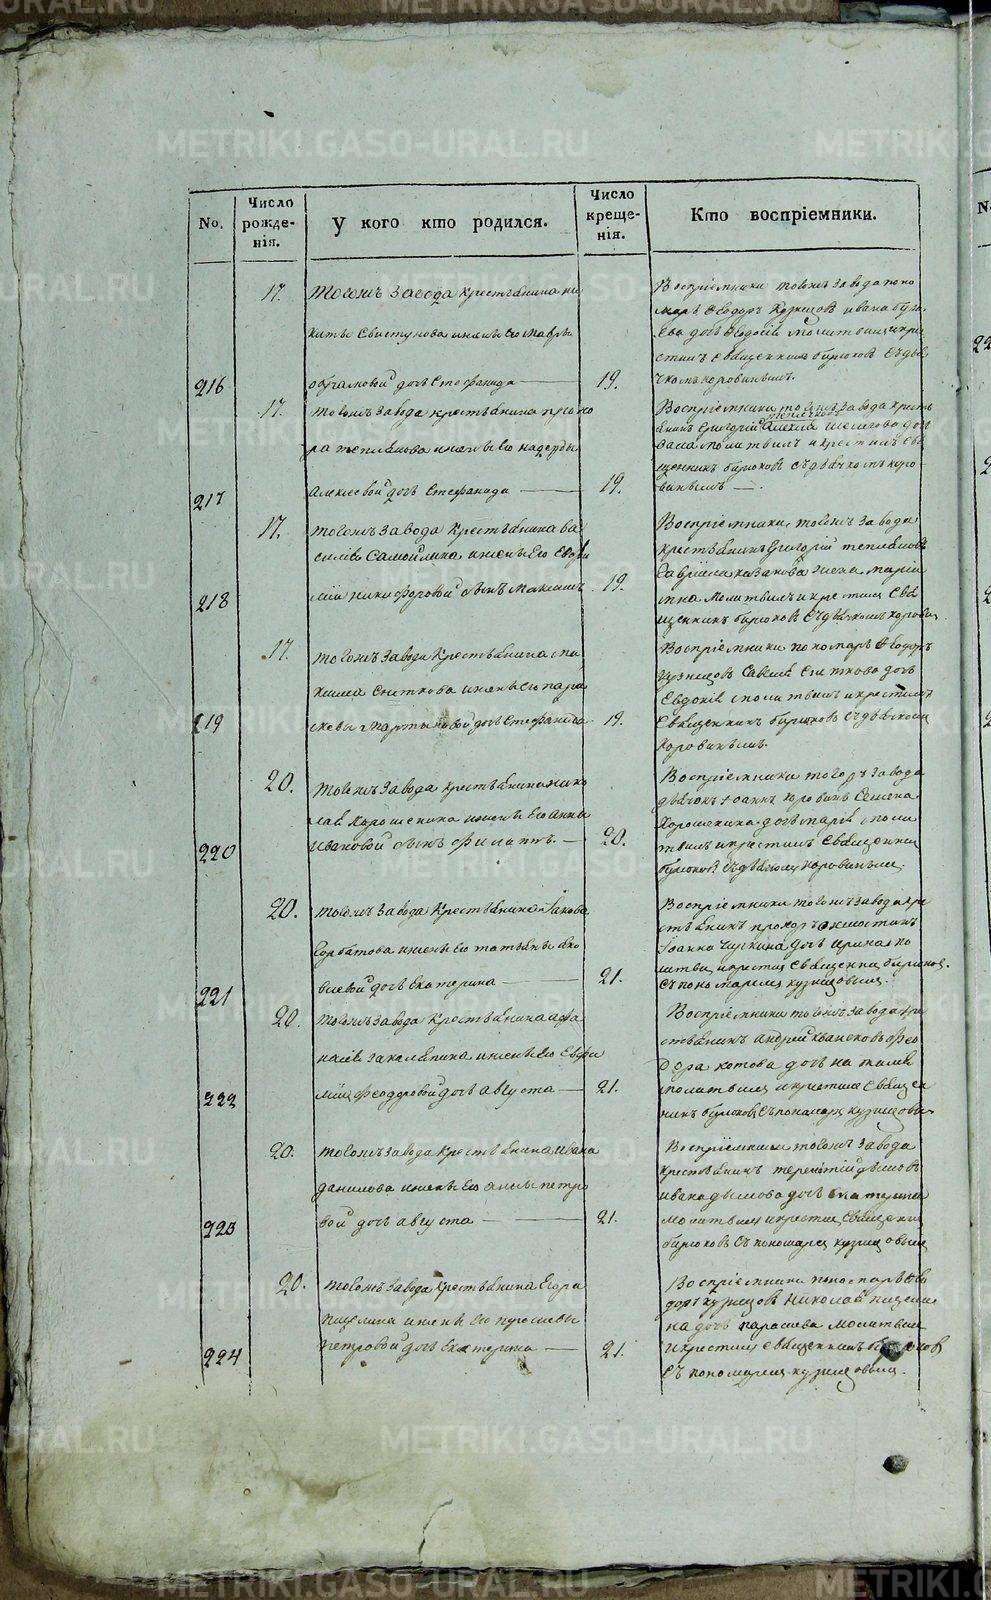 No.
Число
рожде-
нія.
У кого кто родился.
Число
креще-
нія.
Кто воспріемники.
216
17.
тогожъ завода крестьянина ни
киты Свистунова и жены его мавры
дочь Стефанида
19.
Воспріемники тогожъ завода поно
марь Ѳеодоръ Кузнецовъ ивана
ева дочь Ѳеодосія молитвилъ и кре
стилъ Священникъ бирюковъ Съ дья
чкомъ коровинымъ.
217
17.
тогожъ завода крестьянина прохо
ра теплякова и жены его надежды
алексеевой дочь Стефанида
19.
Воспріемники тогожъ завода кресть
янинъ Григорій тепляковъ алексея дочь
молитвилъ и крестилъ Свя
щенникъ бирюковъ Съ дьячкомъ коро
винымъ.
218
17.
тогожъ завода крестьянина ва
силія Самойлина и жены его Евфи
міи никифоровой сынъ максимъ
19.
Воспріемники тогожъ завода
крестьянинъ Григорій тепляковъ
Гавріила казакова жена марія
молитвилъ и крестилъ Свя
щенникъ бирюковъ Съ дьячкомъ корови
219
17.
тогожъ завода крестьянина ма
ксима Сыткова и жены его пара
сковьи мартыновой дочь Стефанида
19.
Воспріемники пономарь Ѳеодоръ
Кузнецовъ Савелія Сыткова дочь
Евдокія молитвилъ и крестилъ
Священникъ бирюковъ Съ дьячкомъ
коровинымъ.
220
20.
тогожъ завода крестьянина нико
лая Хорошенина и жены его анны
Ивановой сынъ Филиппъ.
20.
Воспріемники тогожъ завода
дьячокъ Іоаннъ коровинъ Семена
Хорошенина дочь марія моли
твилъ и крестилъ Священникъ
бирюковъ Съ дьячкомъ коровинымъ.
221
20.
тогожъ завода крестьянина Іакова
Горбатова и жены его татьяны яко
влевой дочь Екатерина
21.
Воспріемники тогожъ завода кре
стьянинъ прохоръ
Іоанна дочь ирина мо
литвилъ и крестилъ Священникъ бирюковъ.
Съ пономаремъ кузнецовымъ.
222
20.
тогожъ завода крестьянина афа
насія закаляпина и жены его Евфи
міи Феодоровой дочь августа
21.
Воспріемники тогожъ завода кре
стьянинъ андрей Фео
дора котова дочь наталія
молитвилъ и крестилъ Священ
никъ бирюковъ Съ пономаремъ кузнецовы
223
20.
тогожъ завода крестьянина ивана
данилова и жены его анны петро
вой дочь августа
21.
Воспріемники тогожъ завода
крестьянинъ терентій дымовъ
ивана дымова дочь Екатерина
молитвилъ и крестилъ Священникъ
бирюковъ Съ пономаремъ кузнецовымъ
224
20.
тогожъ завода крестьянина Егора
пищулина и жены его
петровой дочь Екатерина
21.
Воспріемники пономарь Ѳео
доръ кузнецовъ николая пищули
на дочь парасева молитвилъ
и крестилъ Священникъ бирюковъ
Съ пономаремъ кузнецовымъ.
METRIKI.GASO-URAL.RU